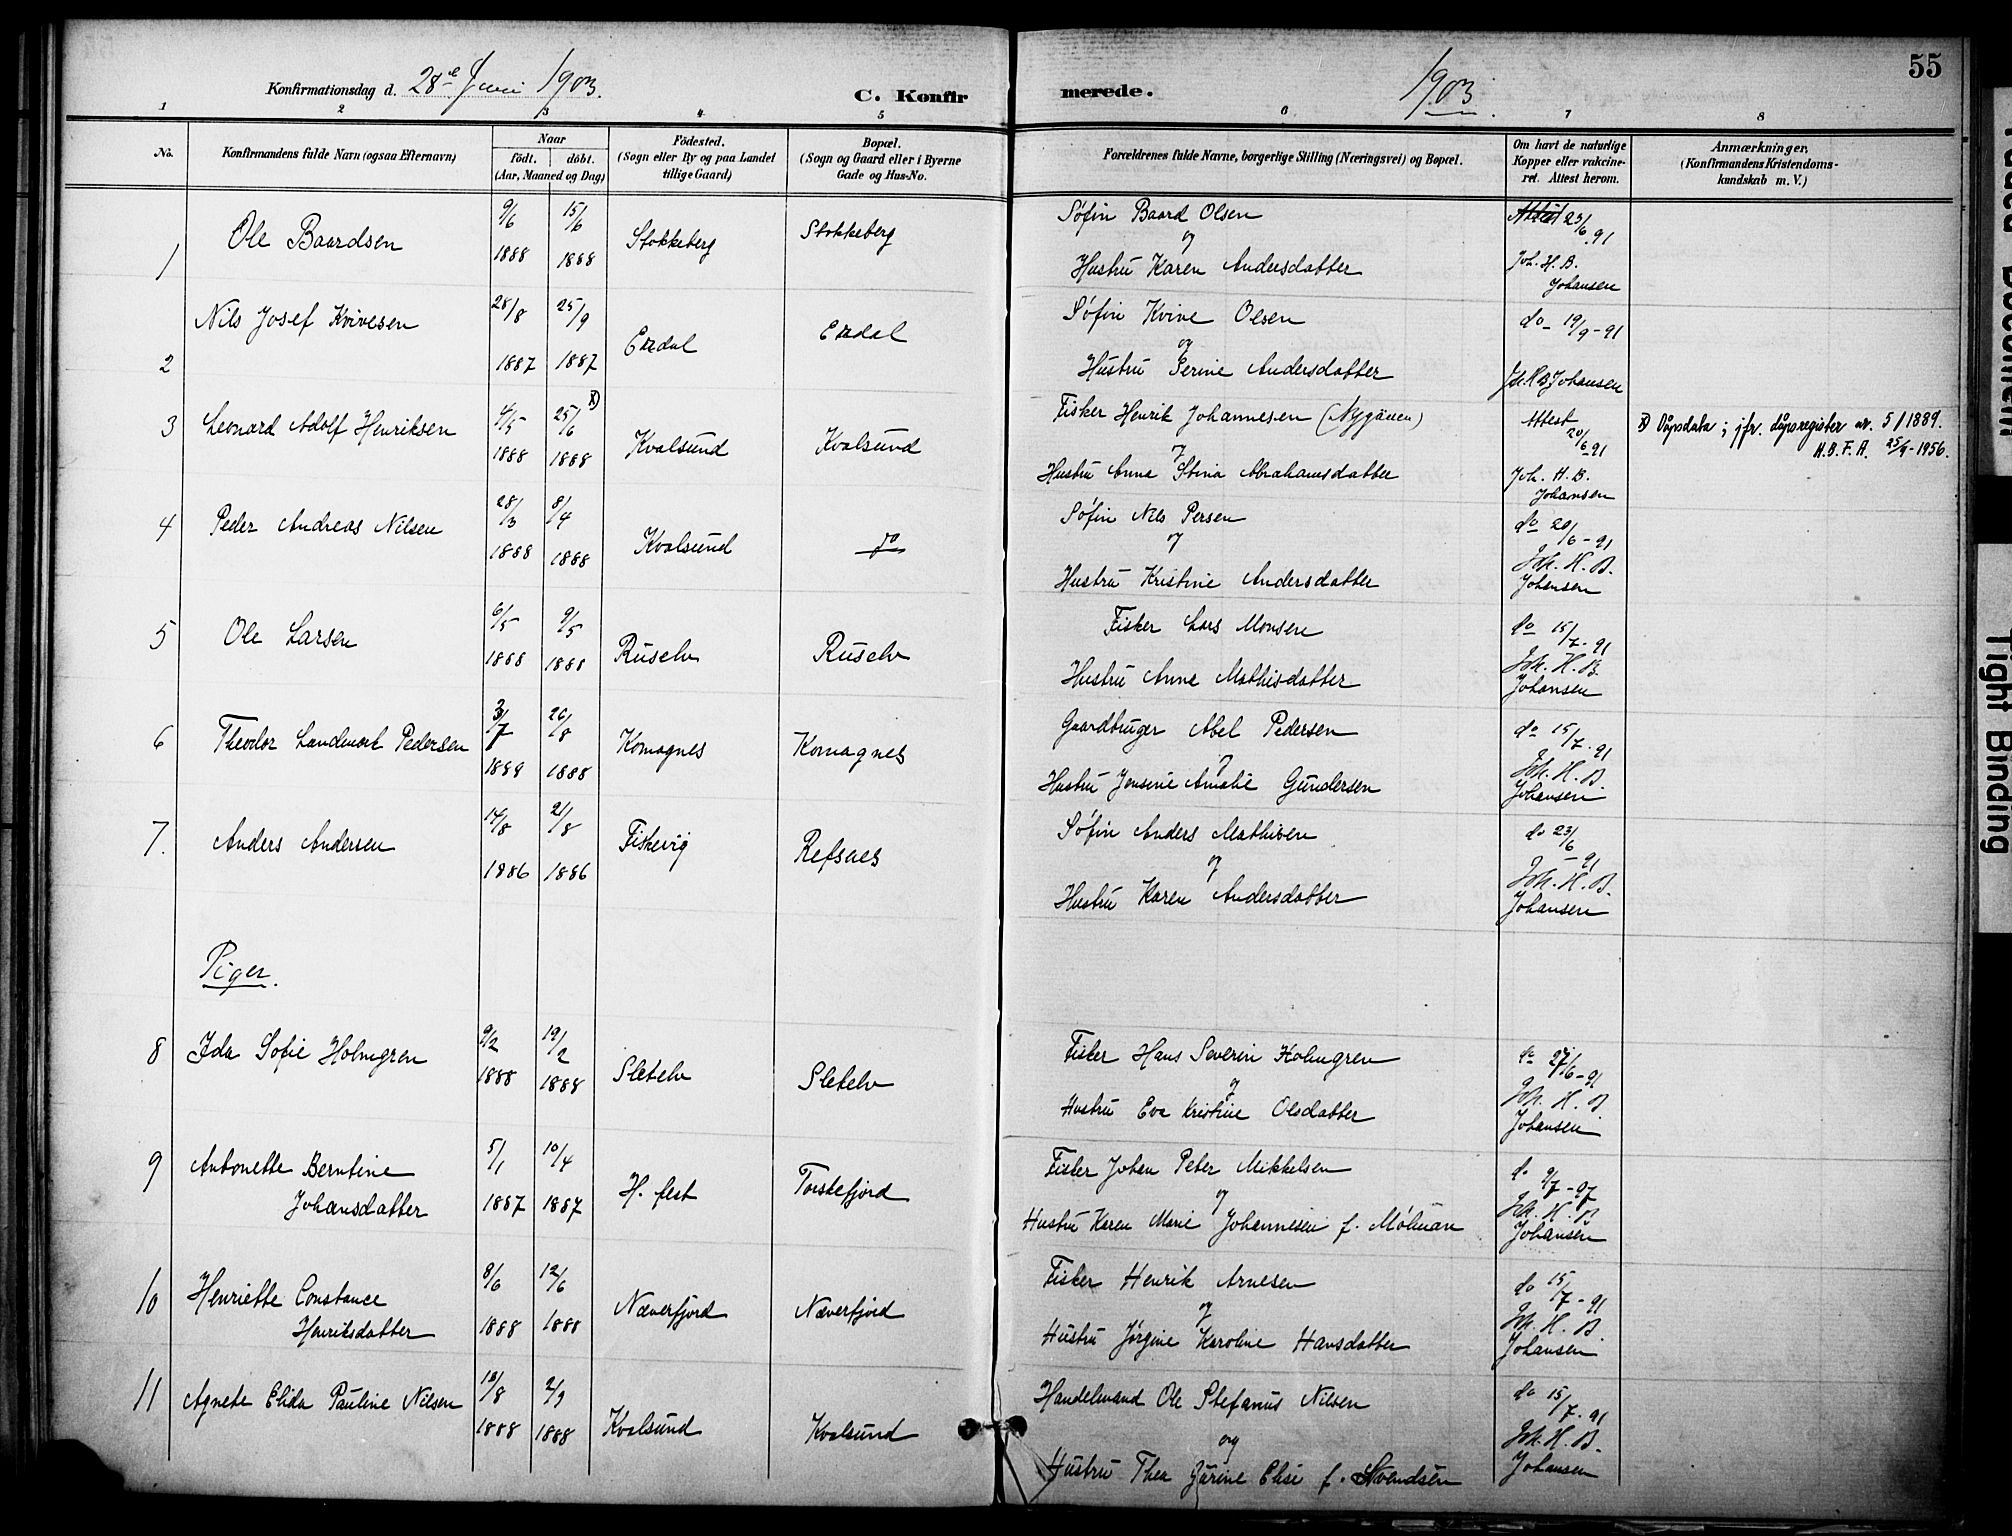 Konfirmationsdag d. 28de Juni 1903.
C. Konfir
merede.
1903.
55
1 2 3 4 5 6 7 8
No.
Konfirmandens fulde Navn (ogsaa Efternavn)
Naar
födt. döbt.
(Aar, Maaned og Dag)
Födested.
(Sogn eller By og paa Landet
tillige Gaard)
Bopæl.
(Sogn og Gaard eller i Byerne
Gade og Hus-No.
Forældrenes fulde Navne, borgerlige Stilling (Næringsvei) og Bopæl.
Om havt de naturlige
Kopper eller vakcine-
ret. Attest herom.
Anmærkninger,
(Konfirmandens Kristendoms-
kundskab m. V.)
1 Ole Baardsen 9/6 1888 15/6 1888 Stokkeberg Stokkeberg
Søfin Baard Olsen
og
Hustru Karen Andersdatter
Attest 23/6.91
Joh. H. B.
Johansen
2 Nils Josef Kvivesen 28/8 1887 25/9 1887
Søfin Kvive Olsen
og
Hustru Serine Andersdatter
do 19/9-91
Joh. H B Johansen
3 Leonard Adolf Henriksen 4/5 1888 25/6 x) 1888 Kvalsund Kvalsund
Fisker Henrik Johannesen
og
Hustru Anne Stina Abrahamsdatter
Attest
20/6-91
Joh. H. B.
Johansen
x) Dåpsdata; jfr. dåpsregister nr. 5/1889.
H.B.F.A. 25/9-1956.
4 Peder Andreas Nilsen 28/3 1888 8/4 1888 Kvalsund do
Søfin Nils Persen
og
Hustru Kristine Andersdatter
do 20/6-91
Joh. H. B.
Johansen
5 Ole Larsen 6/5 1888 9/5 1888 Ruselv Ruselv
Fisker Lars Monsen
Hustru Anne Mathisdatter
do 15/7-91
Joh. H. B.
Johansen
6 Theodor Landmark Pedersen 3/7 1888 26/8 1888 Komagnes Komagnes
Gaardbruger Abel Pedersen
og
Hustru Jensine Amalie Gundersen
do 15/7.91
Joh. H. B.
Johansen
7. Anders Andersen 14/8 1886 21/8 1886 Fiskevig Refsnes
Søfin Anders Mathisen
og
Hustru Karen Andersdatter
do 23/6-91
Joh. H. B.
Johansen
Piger.
8 Ida Sofie Holmgren 9/2 1888 19/2 1888 Sletelv Sletelv
Fisker Hans Severin Holmgren
og
Hustru Eva Kristine Olsdatter
do 27/6-91
Joh. H. B.
Johansen
9 Antonette Berntine
Johansdatter 5/1 1887 10/4 1887 H. fest Torskefjord
Fisker Johan Peter Mikkelsen
og
Hustru Karen Marie Johannesen f.
do 9/7-97
Joh. H. B
Johansen
10 Henriette Constance
Henriksdatter 8/6 1888 12/6 1888 Næverfjord Næverfjord
Fisker Henrik Arnesen
og
Hustru Jørgine Karoline Hansdatter
do 15/7-91
Joh. H. B.
Johansen
11 Agnete Elida Pauline Nilsen 18/8 1888 2/9 1888 Kvalsund Kvalsund
Handelsmand Ole Stefanus Nilsen
og
Hustru Thea Jørine Elise f. Svendsen
do 15/7-91
Joh. H. B.
Johansen
Tight Binding